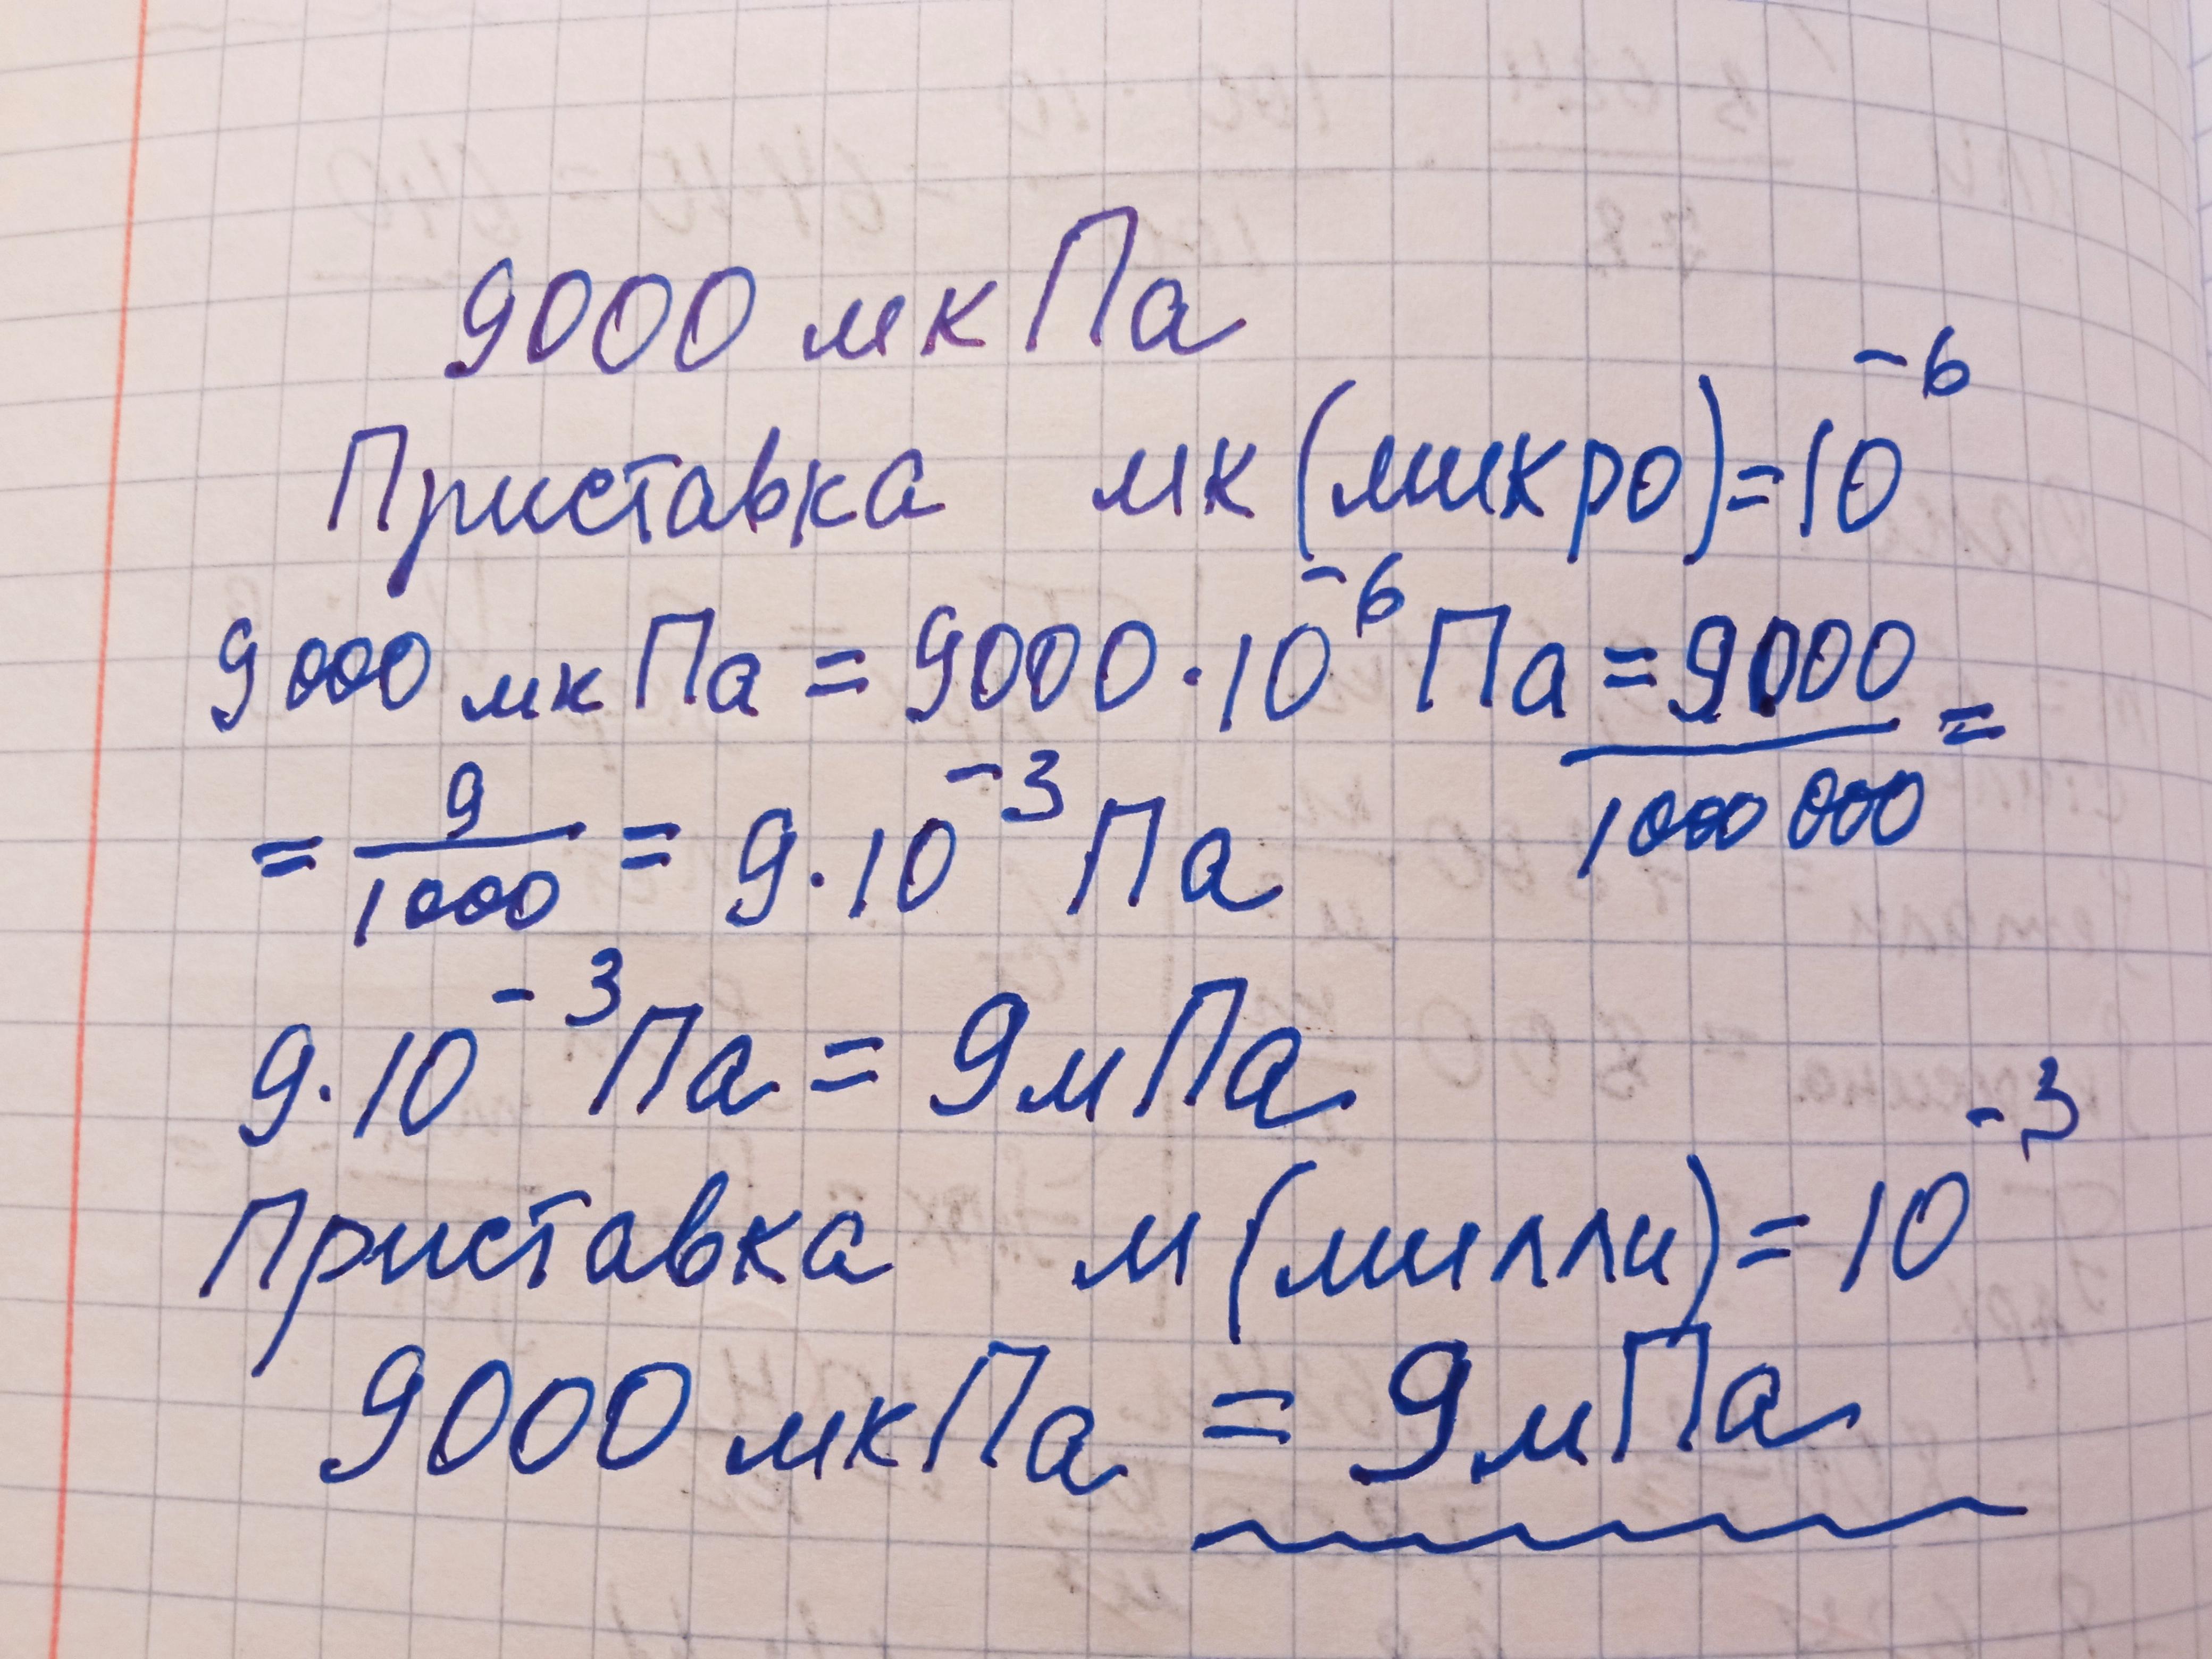 9000 мкПа
Приставка мк (микро) = 10⁻⁶
9000 мкПа = 9000 · 10⁻⁶ Па = 9000/1000 000 =
= 9/1000 = 9 · 10⁻³ Па
9 · 10⁻³ Па = 9 мПа.
Приставка м (милли) = 10⁻³
9000 мкПа = 9 мПа